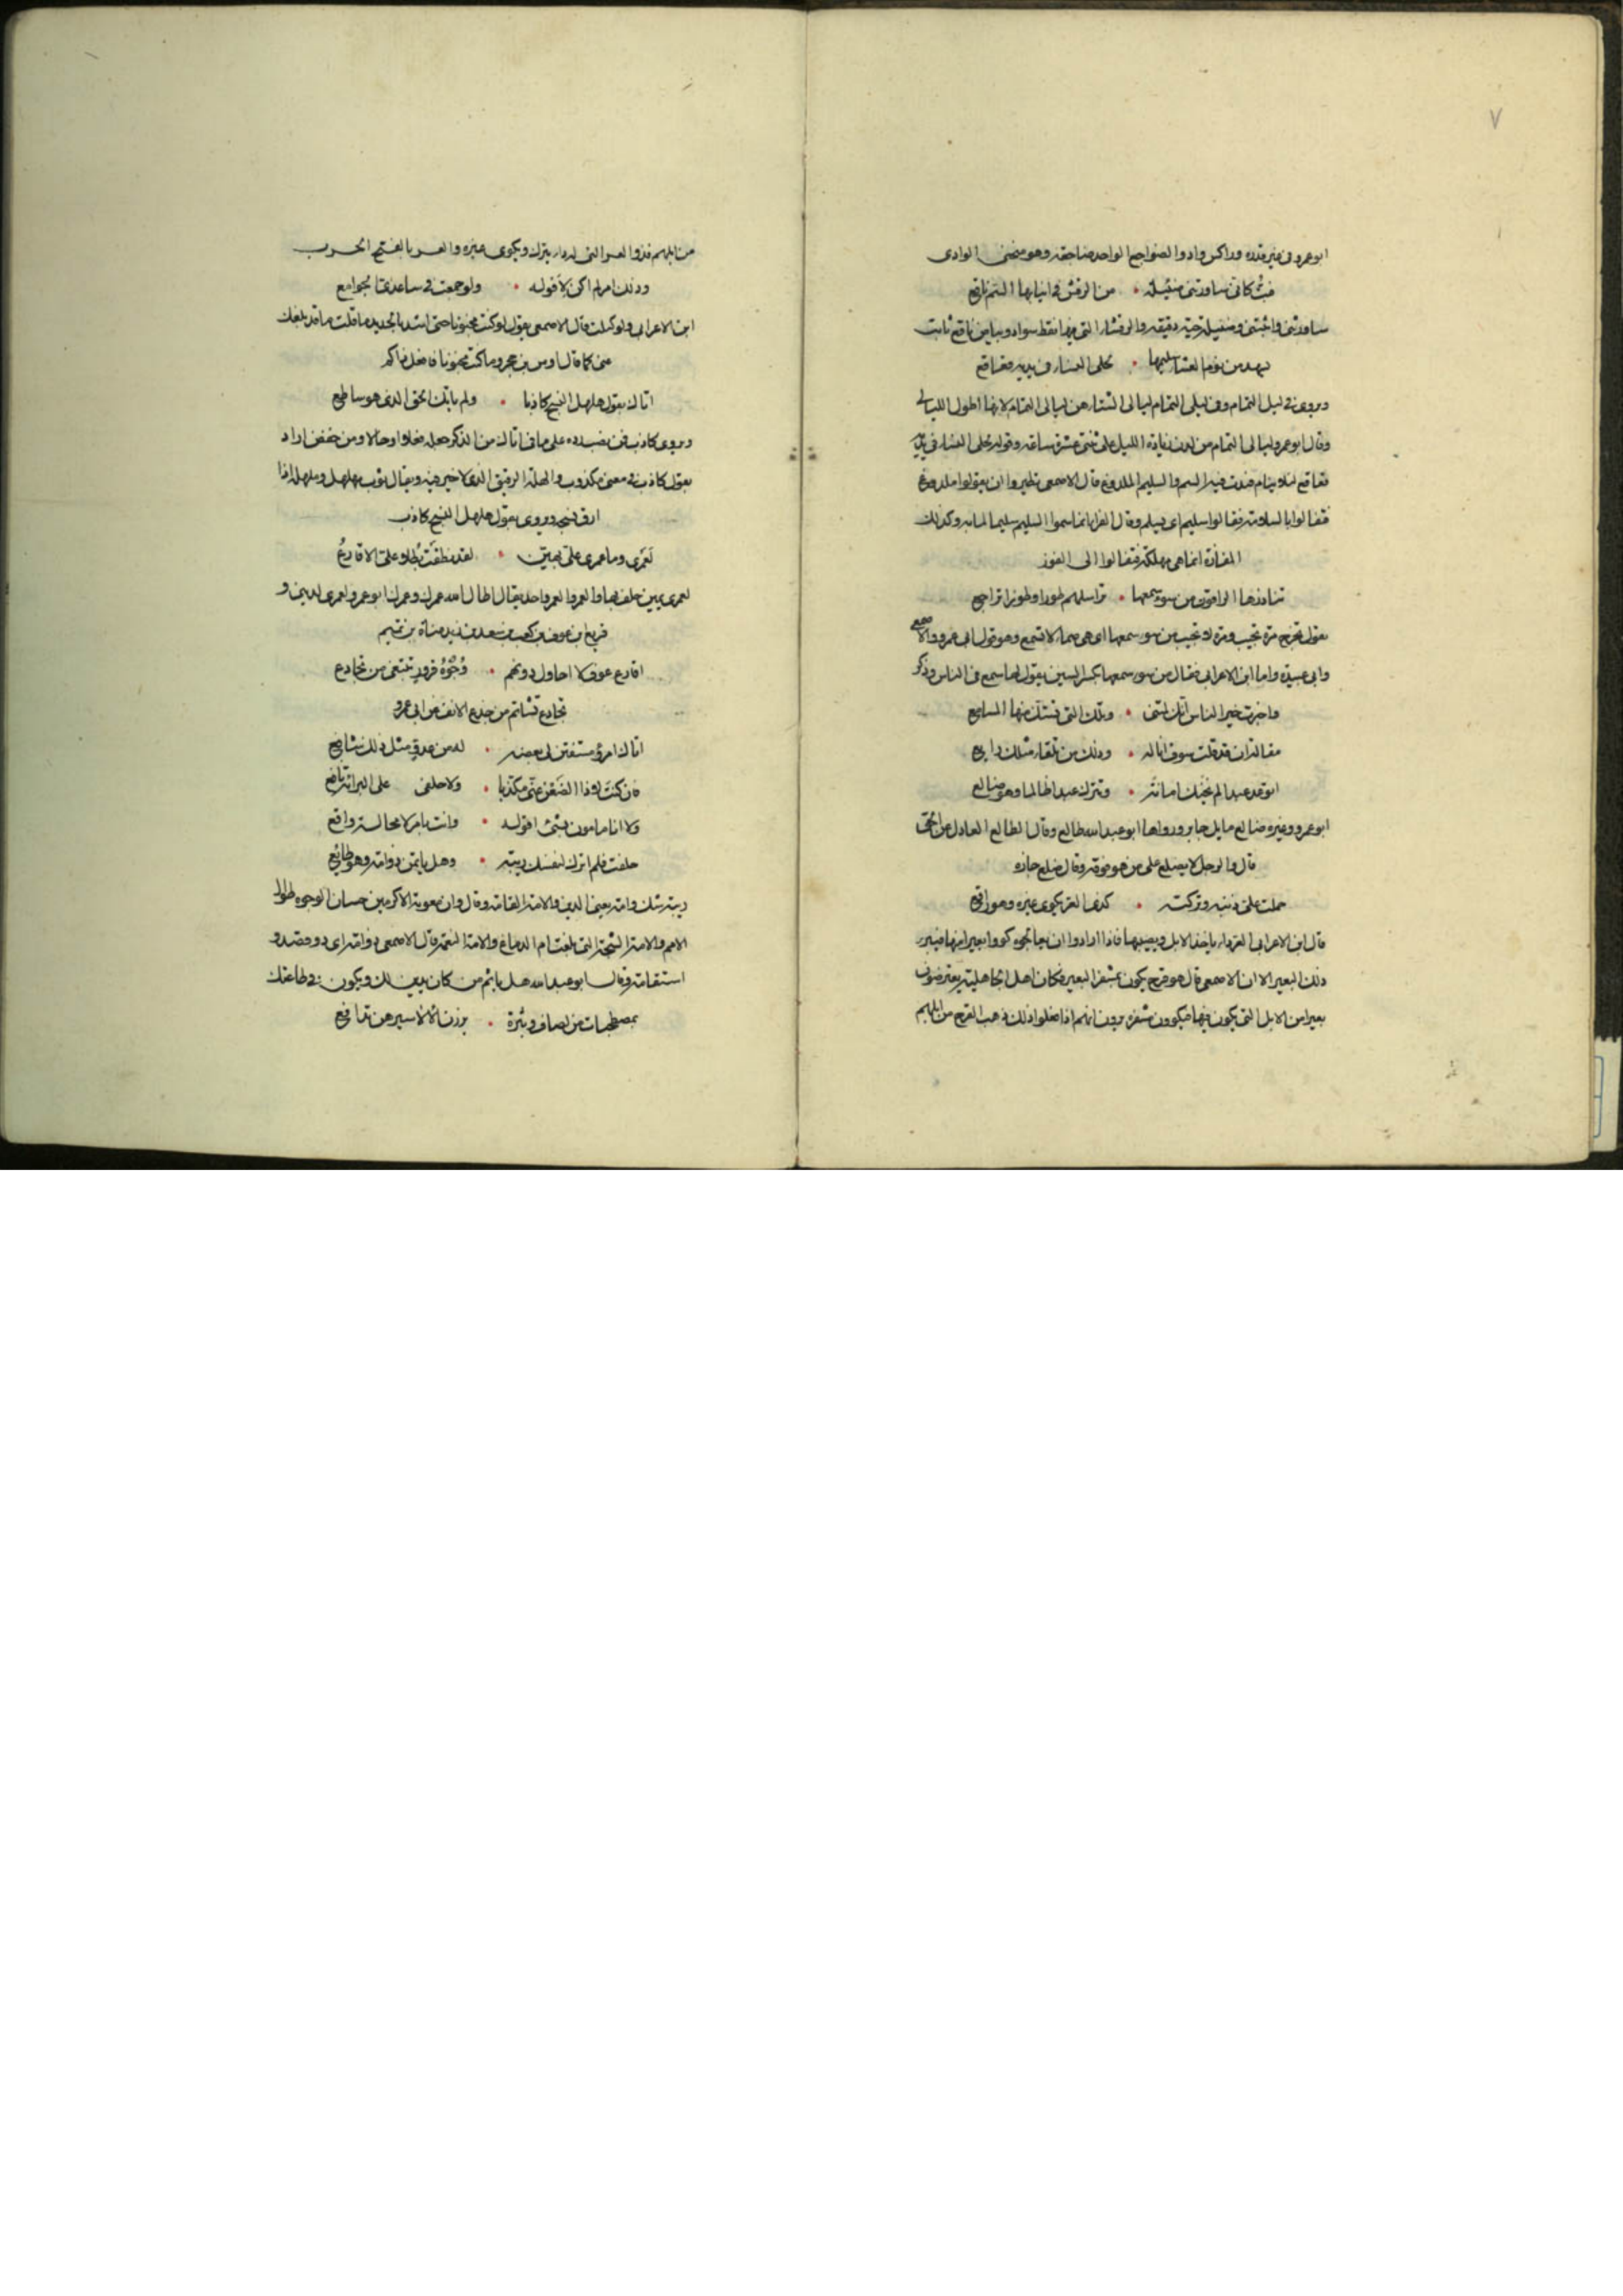 ٧
ابو عمرو في غير قدره وراكس واد والضواجع الواحد ضاجعه وهو منحنى الوادى
فبت كاني ساورتني ضئيلة • من الرقش في انيابها السم ناقع
ساورتني واثبتني وضئيلة حية دقيقه والرقشا التي فيها نقط سواد وبياض ناقع ثابت
يسهد من نوم العشا سليمها • لحلى النسا في يديه قعاقع
ويروى في ليل التمام وفي ليلى التمام ليالى الشتا هن ليالى التمام لانها اطول الليالى
وقال ابو عمرو ليالى التمام من لدن زيادة الليل على ثنتى عشرة ساعه وقوله لحلى النسا في يديه
قعاقع لئلا ينام فيدب فيه السم والسليم الملدوغ قال الاصمعى تطيروا ان يقولوا ملدوغ
فقالوا بالسلامة فقالوا سليم اى يسلم وقال الفرا انما سموا السليم سليما لما به وكذلك
المفازة انما هى مهلكة فقالوا الى الفوز
تناذرها الراقون من سوء سمعها • تراسلهم طورا وطورا تراجع
يقول تخرج مرة تجيب ومرة لا تجيب من سوء سمعها اى هى صما لا تسمع وهو قول ابى عمرو والاصمعى
وابى عبيدة واما ابن الاعرابى فقال من سوء سمعها بكسر السين يقول لها سمع فى الناس وذكر
واخبرت خير الناس انك لمتنى • وتلك التى تستك منها المسامع
مقالة ان قد قلت سوف اناله • وذلك من تلقا مثلك رايع
اتوعد عبدا لم يخنك امانة • وتترك عبدا ظالما وهو ضالع
ابو عمرو وغيره ضالع مايل جاير ورواها ابو عبد الله ظالع وقال الظالع العادل عن الحق
قال والرجل لا يضلع على من هو فوقه وقال ضلع جاره
حملت على ذنبه وتركته • كذى العر يكوى غيره وهو راتع
قال ابن الاعرابى العر دا ياخذ الابل ويصيبها فاذا ارادوا ان يعالجوه كووا بعيرا منها فيبر
ذلك البعير الا ان الاصمعى قال هو قرح يكون بمشفر البعير فكان اهل الجاهلية يعترضون
بعيرا من الابل التى يكون فيها فيكوون مشفره يرون انهم اذا فعلوا ذلك ذهب القرح من ابلهم
من ابلهم فذو العر التى له دا يترك ويكوى غيره والعر بالفتح الجرب
وذلك امر لم اكن لاقوله • ولو جمعت فى ساعدى الجوامع
ابن الاعرابى ولو كبلت قال الاصمعى يقول لو كنت مجنونا حتى اشد بالحديد ما قلت ما قد بلغك
عنى كما قال اوس بن حجر وما كنت مجنونا فافعل ذاكم
اتاك بقول هلهل النسج كاذبا • ولم ياتك الحق الذى هو ساطع
ويروى كاذب فمن نصبه رده على ما فى اتاك من الذكر جعله فعلا وحالا ومن خفض اراد
بقول كاذب فى معنى مكذوب والهلهل الرقيق الذى لا خير فيه ويقال ثوب هلهل وهلهل اذا
ارق نسجه ويروى بقول هلهل النسج كاذب
لعمرى وما عمرى على بهين • لقد نطقت بطلا على الاقارع
لعمرى يمين حلف بها والعمر والعمر واحد يقال اطال الله عمرك وعمرك ابو عمرو لعمرى لدينى و
قريع ابن عوف بن كعب بن سعد بن زيد مناة بن تميم
اقارع عوف لا احاول دونهم • وجوه قرود تبتغى من تجادع
تجادع تشاتم من جدع الانف عن ابى عمرو
اتاك امرؤ مستبطن لى بغضه • له من عدو مثل ذلك شافع
فان كنت لا ذا الضغن عنى مكذبا • ولا حلفى على البراة نافع
ولا انا مامون بشئ اقوله • وانت بامر لا محالة واقع
حلفت فلم اترك لنفسك ريبة • وهل ياثمن ذو امة وهو طائع
ريبة شك وامة يعنى الدين والامة القامة وقال وان معوية الاكرمين حسان الوجوه طوال
الامم والامة الشجة التى بلغت ام الدماغ والامة النعمة قال الاصمعى ذو امة اى ذو قصد و
استقامة وقال ابو عبد الله هل ياثم من كان يدين لك ويكون فى طاعتك
بمصطحبات من لصاف وثبرة • يزرن الالا سيرهن تدافع